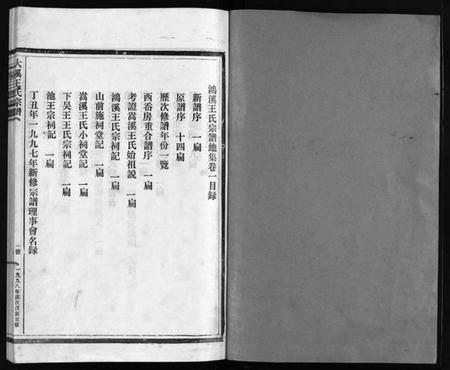 鴻溪王氏宗譜總集卷一目録
新譜序 一扁
原譜序 十四扁
歷次修譜年份一覽
西岙房重合譜序 一扁
考證嵩溪王氏始祖說 一扁
鴻溪王氏宗祠記 一扁
山前施祠堂記 一扁
嵩溪王氏小祠堂記 一扁
下吴王王氏宗祠記 一扁
池王宗祠記 一扁
丁丑年一九九七年新修宗譜理事會名録
大溪王氏宗譜
一九九八年歲次戊寅重修